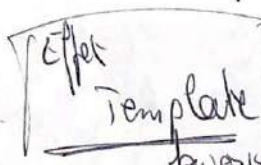 Effet
Template